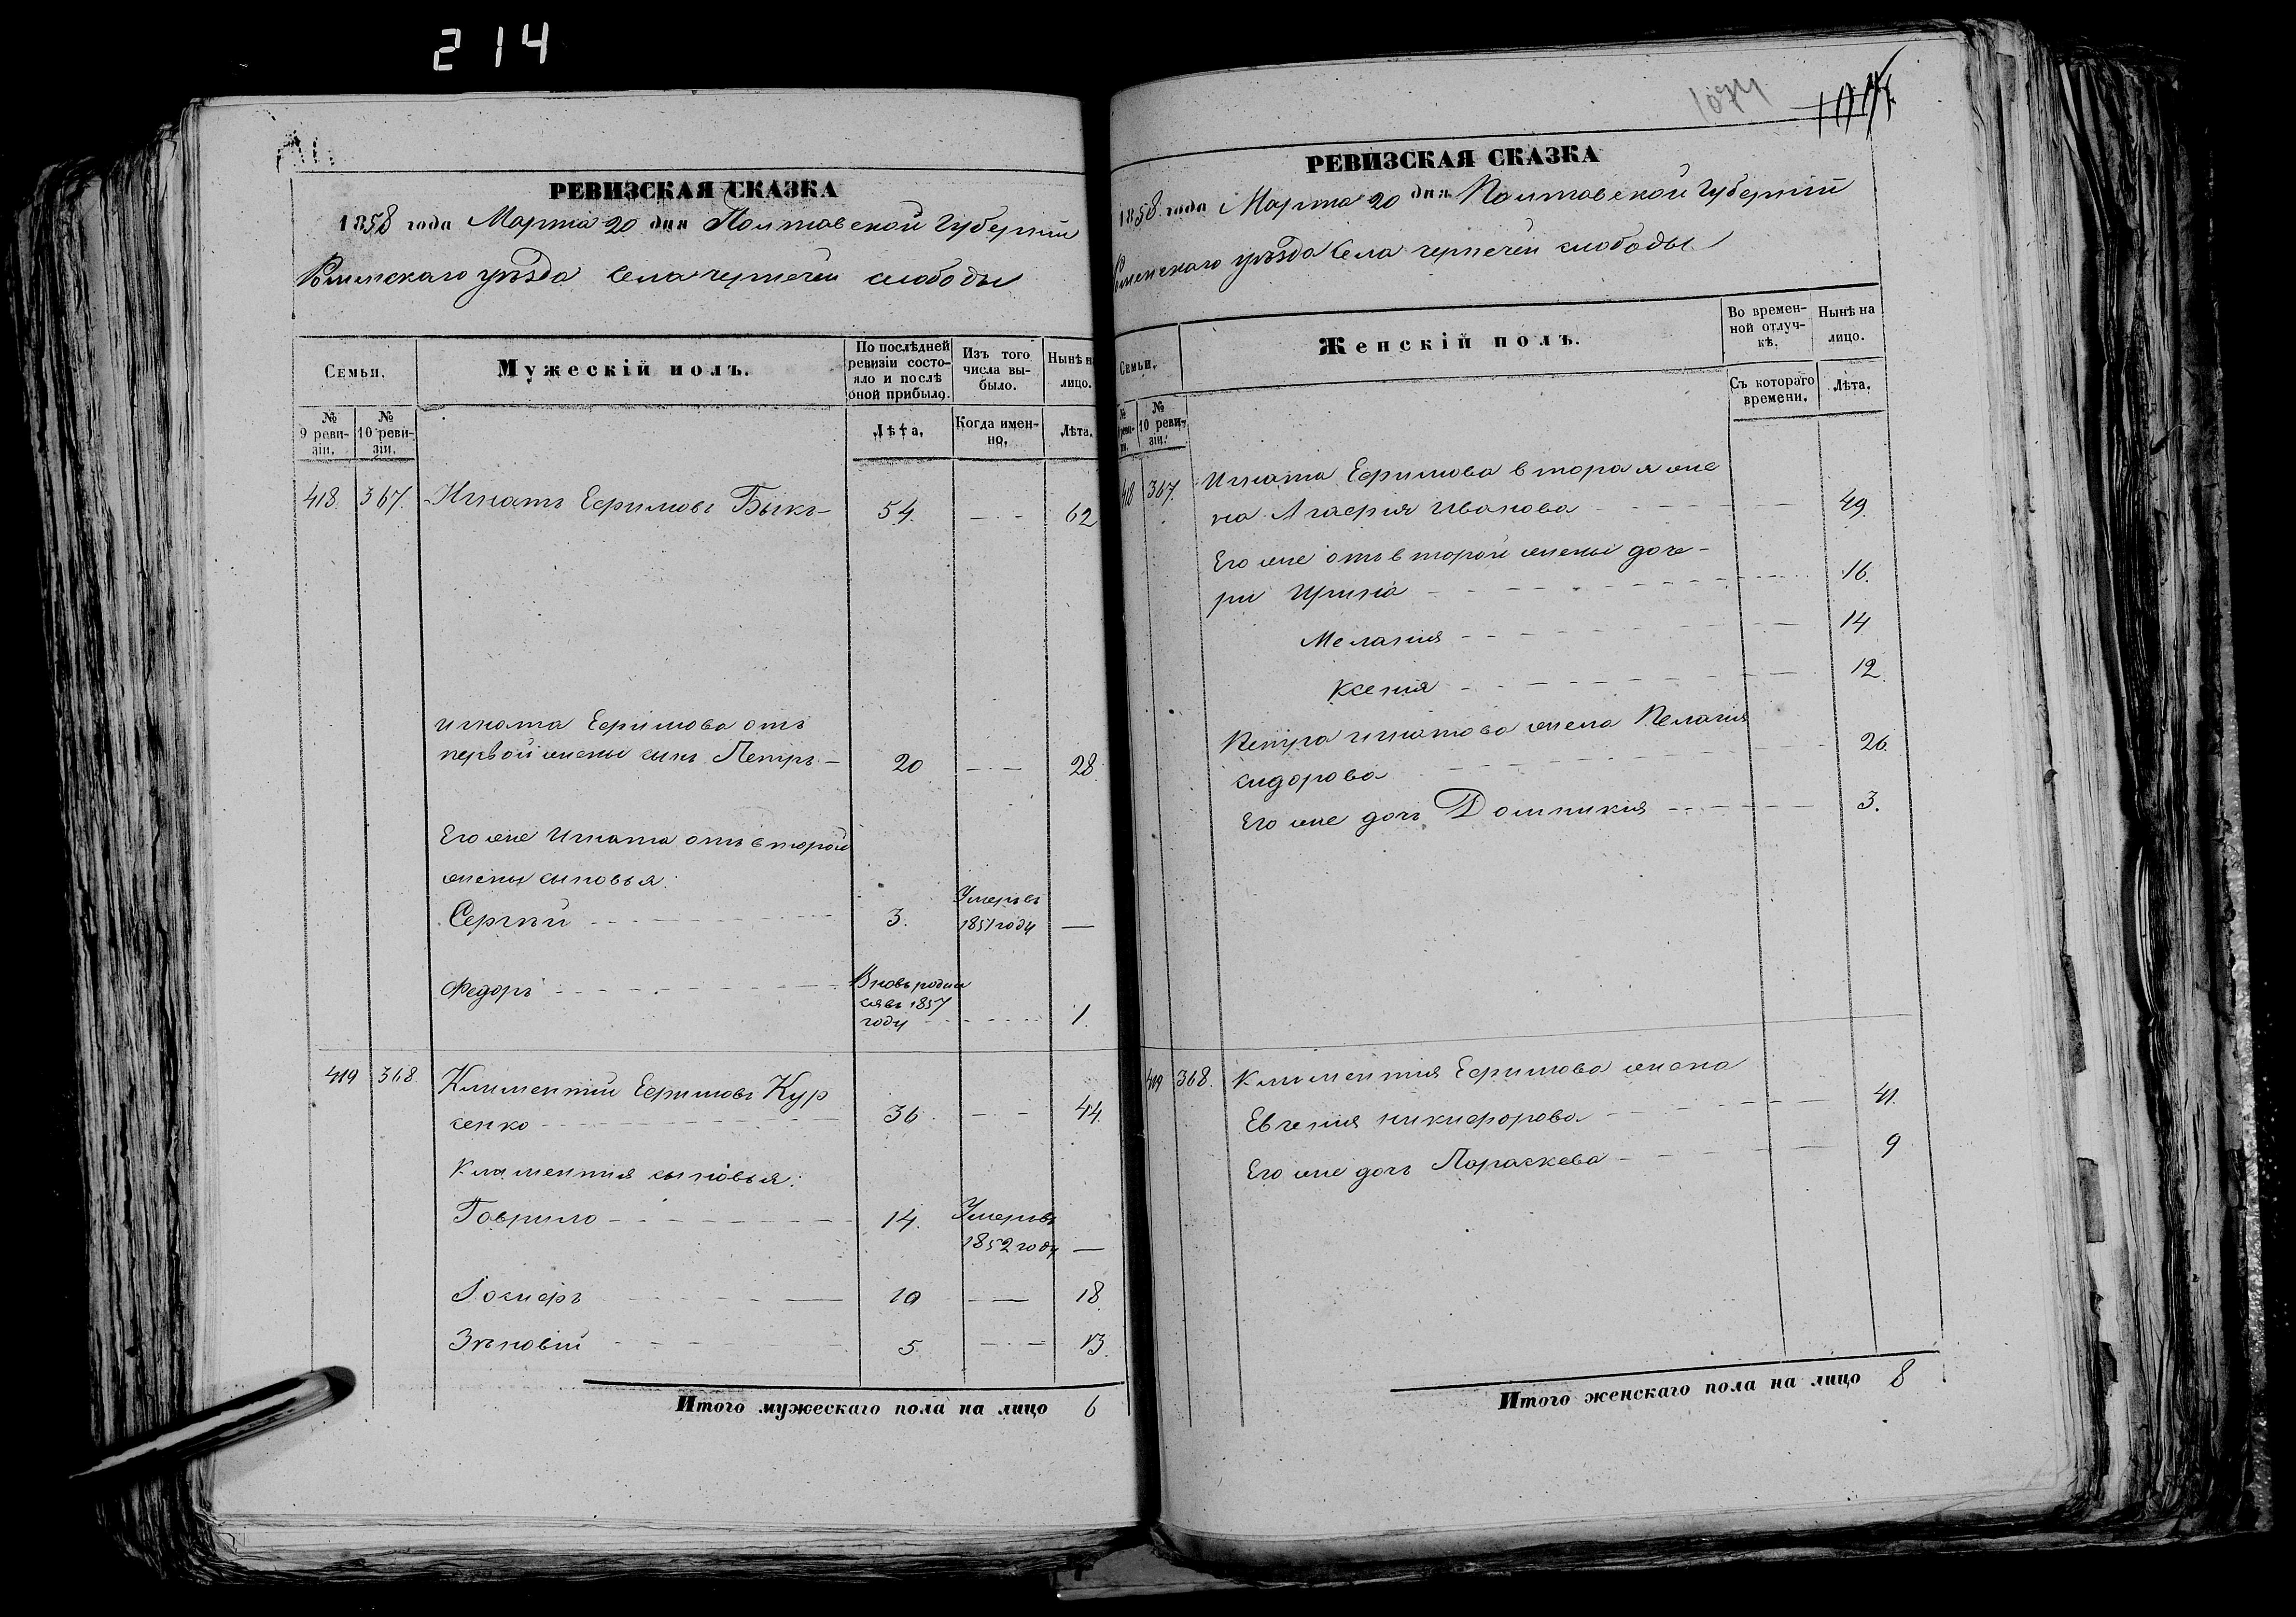 214
РЕВИЗСКАЯ СКАЗКА
1858 года Марта 20 дня Полтавской Губерніи
Роменскаго уѣзда села чернечей слободы
Семьи.
Мужескій полъ.
По послѣдней ревизіи состояло и послѣ оной прибыло.
Изъ того числа выбыло.
Нынѣ на лицо.
№ 9 ревизіи.
№ 10 ревизіи.
Лѣта.
Когда именно.
Лѣта.
418. 367. Игнатъ Ефримовъ Быкъ 54. 62
Игната Ефримова отъ
первой жены сынъ Петръ 20 28.
Его же Игната отъ второй
жены сыновья:
Сергѣй 3. Умеръ въ 1851 году
Федоръ Вновь родился въ 1857 году 1.
419 368. Климентій Ефримовъ Кур
сенко 36 44.
Климентия сыновья:
Гаврило 14. Умеръ въ 1852 году
Іосифъ 10 18.
Зѣновій 5. 13.
Итого мужескаго пола на лицо 6
1074
РЕВИЗСКАЯ СКАЗКА
1858 года Марта 20 дня Полтавской Губерніи
Роменскаго уѣзда села чернечей слободы
Семьи.
Женскій полъ.
Во временной отлучкѣ.
Нынѣ на лицо.
№ 9 ревизіи.
№ 10 ревизіи.
Съ котораго времени.
Лѣта.
418 367. Игната Ефримова вторая же
на Агафия Иванова 49.
Его же отъ второй жены доче-
ри Ирина 16.
Мелания 14
Ксения 12.
Петра Игнатова жена Пелагия
Сидорова 26.
Его же дочь Домникия 3.
419 368. Климентия Ефримова жена
Евгения Никифорова 41.
Его же дочь Параскева 9
Итого женскаго пола на лицо 8